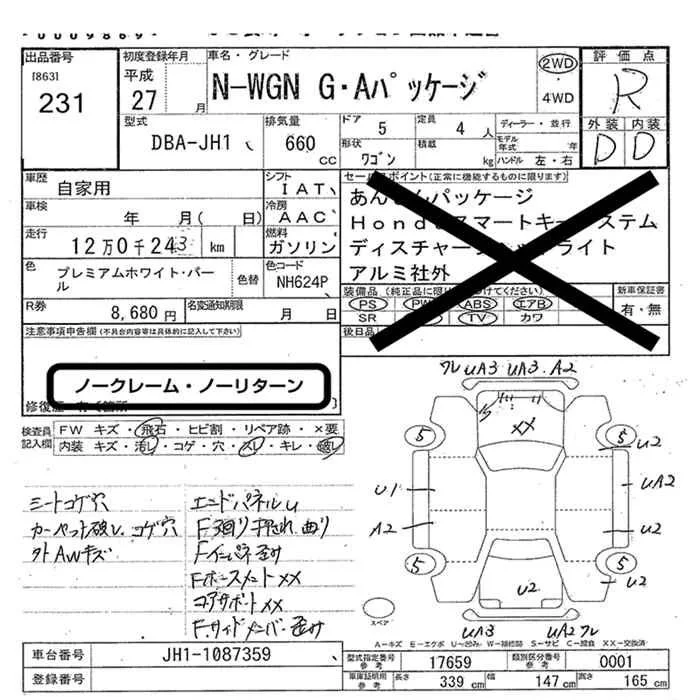 出品番号
[863]
231
初度登録年月
平成
27 月
車名・グレード
N-WGN G・Aパッケージ
2WD
4WD
評価点
R
外装 内装
D D
型式
DBA-JH1
排気量
660 CC
ドア 5
定員 4 人
形状 ワゴン
積載 kg
ディーラー・並行
モデル年式 年
ハンドル 左・右
車歴
自家用
シフト
IAT
車検
年 月( 日)
冷房
AAC
走行
12万0千243 km
燃料
ガソリン
色
プレミアムホワイト・パール
色替
色コード
NH624P
R券
8,680 円
名変通知期限
月 日
セールスポイント(正常に機能するものに限ります)
あんしんパッケージ
Hondaスマートキーシステム
ディスチャージヘッドライト
アルミ社外
装備品(純正品に限り つけてください)
PS PW ABS エアB
SR TV カワ
新車保証書
有・無
後日品
注意事項申告欄(不具合内容等は具体的に記入して下さい)
ノークレーム・ノーリターン
修復歴 有(箇所
検査員記入欄
FW キズ・飛石・ヒビ割・リペア跡・×要
内装 キズ・汚し・コゲ・穴・スレ・キレ・
シートコゲ穴
カーペット破レ、コゲ穴
外AWキズ
エンドパネルU
F廻り押され、曲り
Fインパネ歪み
Fホースメント××
コアサポート××
F.サイドメンバー歪み
フレ UA3 UA3 A2
××
5 5 U2
U1 UA2
A2 U2
5 5 U2
U2
スペア
UA3 UA2 フレ
A-キズ E-エクボ U-凹み W-補修跡 S-サビ C-腐食 XX-交換済
車台番号
JH1-1087359
登録番号
型式指定番号 参考
17659
類別区分番号 参考
0001
車庫証明用 参考
長さ 339 cm
幅 147 cm
高さ 165 cm